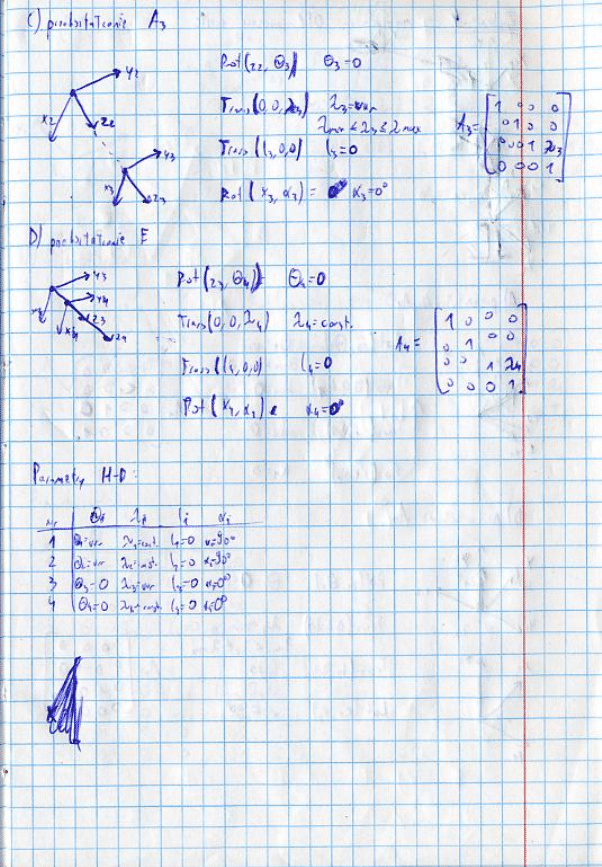 C) przekształcenie A3
y2
x2
z2
y3
x3
z3
Rot(z2, Θ3) Θ3=0
Trans(0,0,λ3) λ3=var
λmin ≤ λ3 ≤ λmax
Trans(l3,0,0) l3=0
Rot(x3, α3) = α3=0°
A3= [1 0 0 0
0 1 0 0
0 0 1 λ3
0 0 0 1]
D) przekształcenie E
y3
y4
x3
x4
z3
z4
Rot(z3, Θ4) Θ4=0
Trans(0,0,λ4) λ4=const.
Trans(l4,0,0) l4=0
Rot(x4, α4) α4=0°
A4= [1 0 0 0
0 1 0 0
0 0 1 λ4
0 0 0 1]
Parametry H-D:
nr Θi λi li αi
1 Θ1=var λ1=const. l1=0 α1=90°
2 Θ2=var λ2=const. l2=0 α2=90°
3 Θ3=0 λ3=var l3=0 α3=0°
4 Θ4=0 λ4=const. l4=0 α4=0°